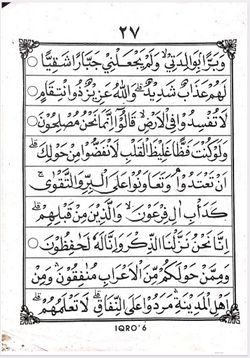 ٢٧
وَبَرًّا بِوَالِدَتِيْ وَلَمْ يَجْعَلْنِيْ جَبَّارًا شَقِيًّا ○
لَهُمْ عَذَابٌ شَدِيْدٌ ۗ وَاللّٰهُ عَزِيْزٌ ذُو انْتِقَامٍ
لَا تُفْسِدُوْا فِى الْاَرْضِ ۙ قَالُوْٓا اِنَّمَا نَحْنُ مُصْلِحُوْنَ ○
وَلَوْ كُنْتَ فَظًّا غَلِيْظَ الْقَلْبِ لَانْفَضُّوْا مِنْ حَوْلِكَ ۖ
اَنْ تَعْتَدُوْا ۘ وَتَعَاوَنُوْا عَلَى الْبِرِّ وَالتَّقْوٰى ۖ
كَدَأْبِ اٰلِ فِرْعَوْنَ ۙ وَالَّذِيْنَ مِنْ قَبْلِهِمْ ۗ
اِنَّا نَحْنُ نَزَّلْنَا الذِّكْرَ وَاِنَّا لَهٗ لَحٰفِظُوْنَ ○
وَمِمَّنْ حَوْلَكُمْ مِّنَ الْاَعْرَابِ مُنٰفِقُوْنَ ۗ وَمِنْ
اَهْلِ الْمَدِيْنَةِ ۗ مَرَدُوْا عَلَى النِّفَاقِ ۗ لَا تَعْلَمُهُمْ ۗ
IQRO' 6